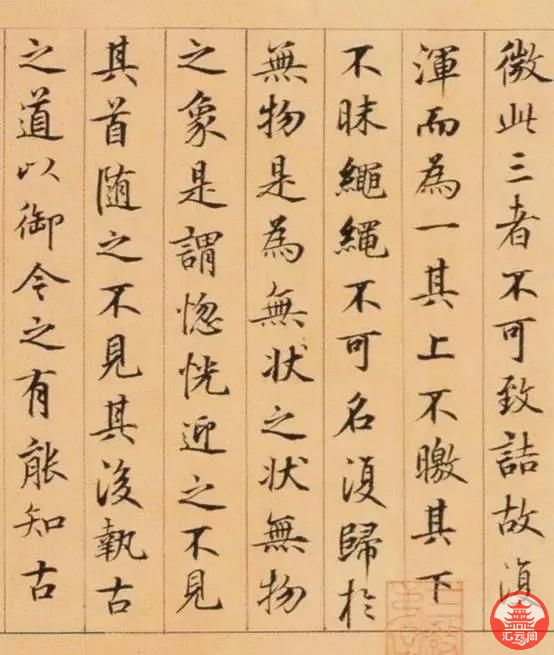 微此三者不可致詰故復
渾而為一其上不曒其下
不昧繩繩不可名復歸於
無物是為無状之状無物
之象是謂惚恍迎之不見
其首随之不見其後執古
之道以御今之有能知古
汇云阁